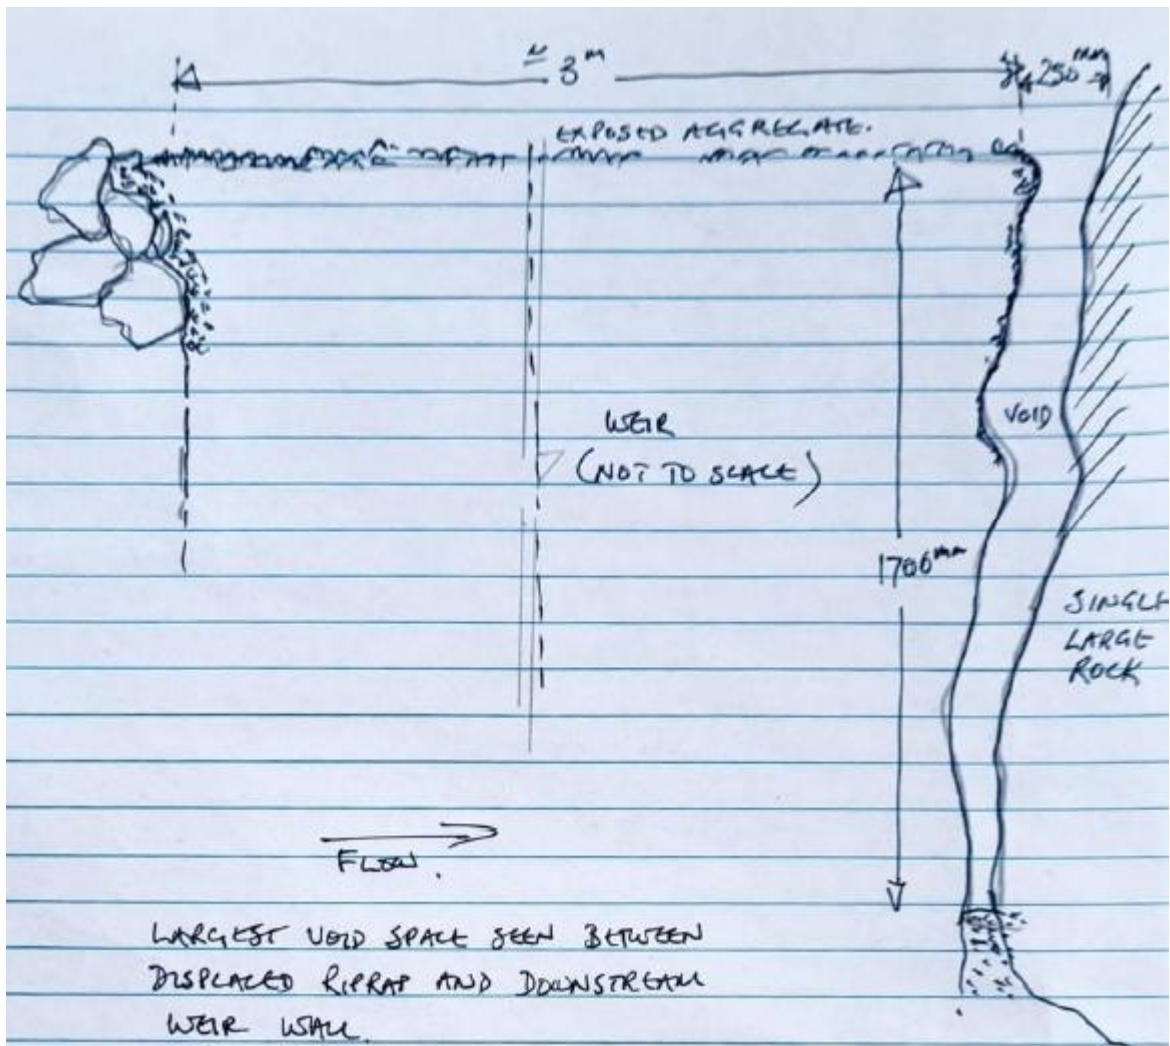 ≈ 3m
250mm
EXPOSED AGGREGATE.
VOID
WEIR
(NOT TO SCALE)
1700mm
SINGLE
LARGE
ROCK
FLOW.
LARGEST VOID SPACE SEEN BETWEEN
DISPLACED RIPRAP AND DOWNSTREAM
WEIR WALL.